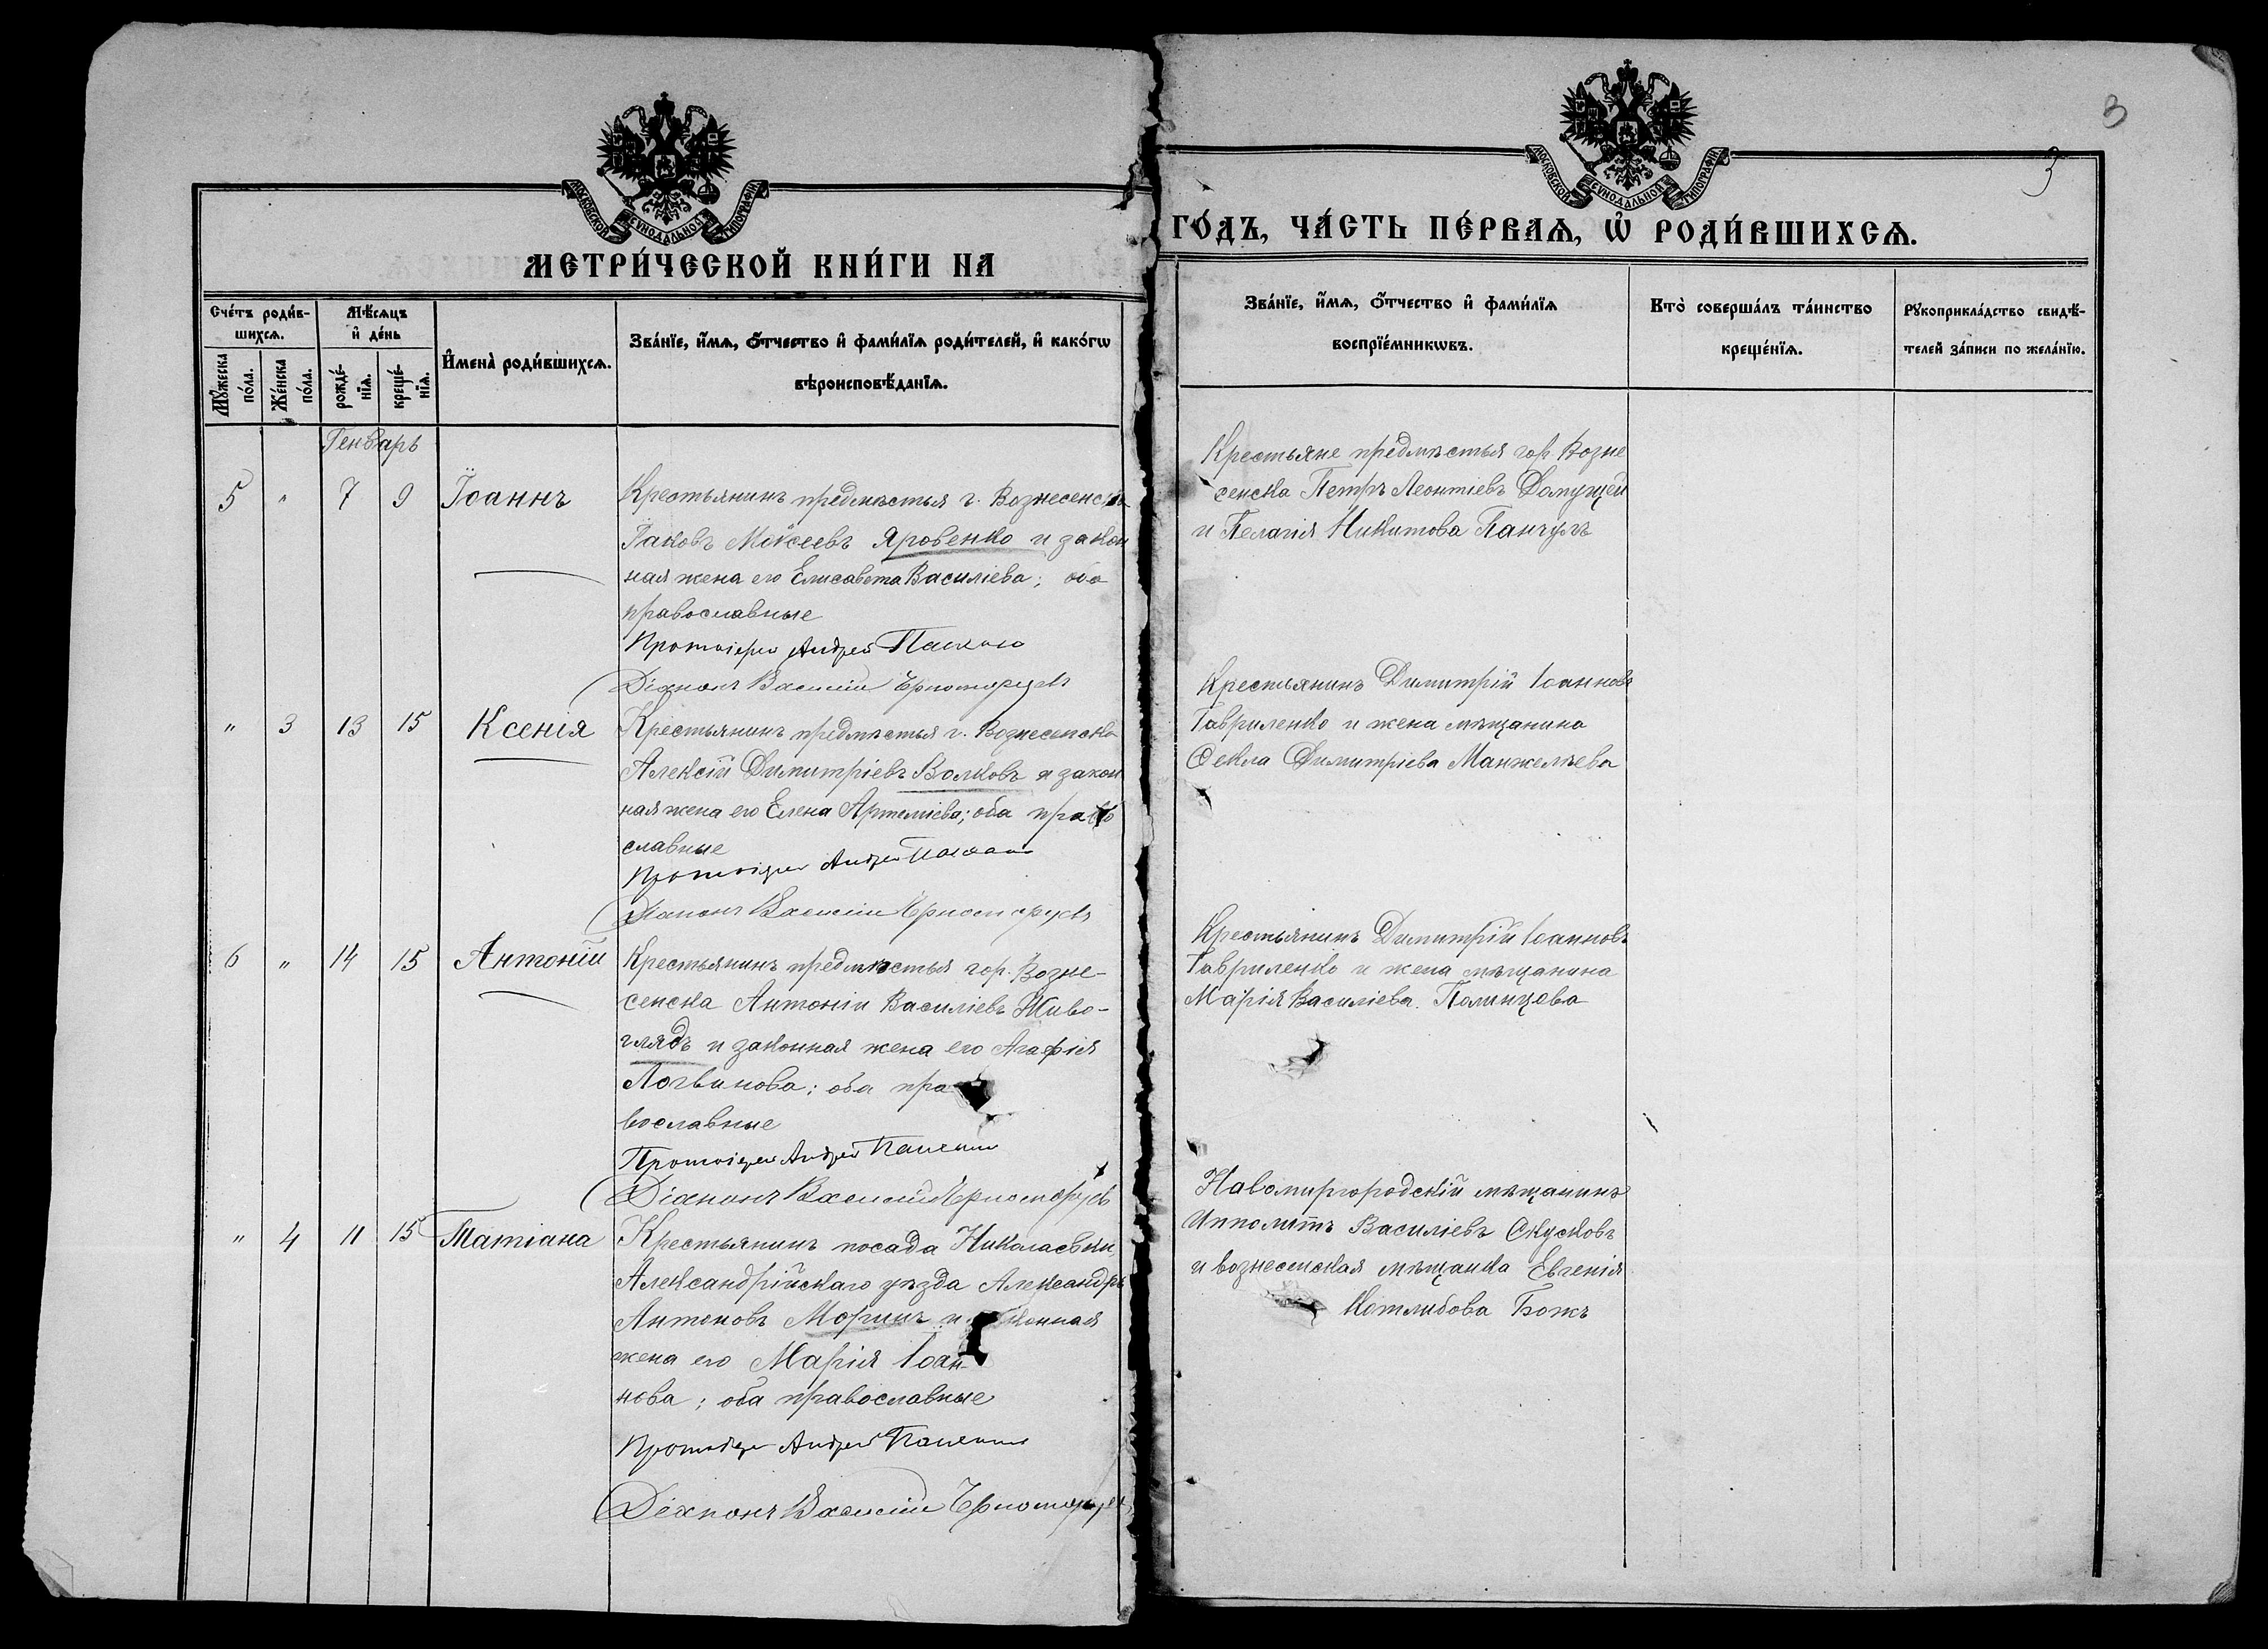 3
3
МОСКОВСКОЙ СѴНОДАЛЬНОЙ ТИПОГРАФІИ
МОСКОВСКОЙ СѴНОДАЛЬНОЙ ТИПОГРАФІИ
МЕТРИ́ЧЕСКОЙ КНИ́ГИ НА
ГО́ДЪ, ЧА́СТЬ ПЕ́РВАѦ, Ѡ҆ РОДИ́ВШИХСѦ.
Сче́тъ роди́в-
шихсѧ.
Мꙋ́жеска
по́ла.
Же́нска
по́ла.
Мѣ́сѧцъ
и҆ де́нь
рожде́-
нїѧ.
креще́-
нїѧ.
И҆мена̀ роди́вшихсѧ.
Зва́нїе, и҆́мѧ, ѻ҆́тчество и҆ фами́лїѧ роди́телей, и҆ како́гѡ
вѣроисповѣ́данїѧ.
Зва́нїе, и҆́мѧ, ѻ҆́тчество и҆ фами́лїѧ
воспрїе́мникѡвъ.
Кто̀ соверша́лъ та́инство
креще́нїѧ.
Рꙋкоприкла́дство свидѣ́-
телей за́писи по жела́нїю.
Генварь
5 " 7 9 Іоаннъ
Крестьянинъ предмѣстья г. Вознесенска
Іаковъ Моѵсеевъ Яровенко и закон
ная жена его Елисавета Василіева; оба
православные
Протоіерей Андрей
Діаконъ Василій
Крестьяне предмѣстья гор. Возне
сенска Петръ Леонтіевъ Домущей
и Пелагія Никитова Панчулъ
" 3 13 15 Ксенія
Крестьянинъ предмѣстья г. Вознесенска
Алексій Димитріевъ Волковъ и закон
ная жена его Елена Артеміева; оба право
славные
Протоіерей Андрей
Діаконъ Василій
Крестьянинъ Димитрій Іоанновъ
Гавриленко и жена мѣщанина
Ѳекла Димитріева Манжелѣева
6 " 14 15 Антоній
Крестьянинъ предмѣстья гор. Возне-
сенска Антоній Василіевъ Живо-
глядъ и законная жена его Агафія
Логвинова; оба пра
вославные
Протоіерей Андрей
Діаконъ Василій
Крестьянинъ Димитрій Іоанновъ
Гавриленко и жена мѣщанина
Марія Василіева Полинцова
" 4 11 15 Татіана
Крестьянинъ посада Николаевки,
Александрійскаго уѣзда Александръ
Антоновъ Моринъ и конная
жена его Марія Іоан-
нова; оба православные
Протоіерей Андрей
Діаконъ Василій
Новомиргородскій мѣщанинъ
Ипполитъ Василіевъ Скусковъ
и вознесенская мѣщанка Евгенія
Божъ